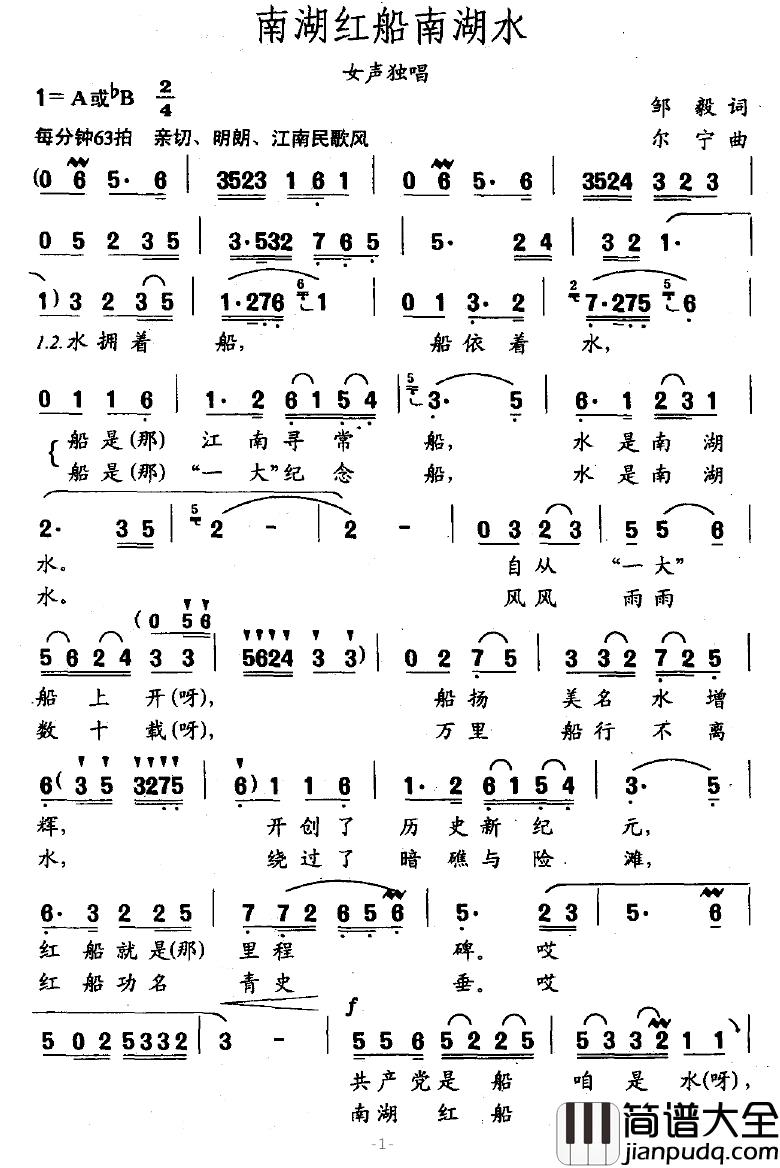 南湖红船南湖水
女声独唱
1=A或♭B 2/4
邹毅词
每分钟63拍 亲切、明朗、江南民歌风
尔宁曲
(0 6 5· 6 | 3523 1 6 1 | 0 6 5· 6 | 3524 3 2 3 |
0 5 2 3 5 | 3·532 7 6 5 | 5· 2 4 | 3 2 1· |
1) 3 2 3 5 | 1·276 6 1 | 0 1 3· 2 | 2 7·275 5 6 |
1.2.水拥着 船, 船依着 水,
0 1 1 6 | 1· 2 6 1 5 4 | 5 3· 5 | 6· 1 2 3 1 |
船是(那) 江南寻常 船, 水是南湖
船是(那) “一大”纪念 船, 水是南湖
2· 3 5 | 5 2 - | 2 - | 0 3 2 3 | 5 5 6 |
水。 自从 “一大”
水。 风风 雨雨
(0 5 6
5 6 2 4 3 3 | 5624 3 3) | 0 2 7 5 | 3 3 2 7 2 5 |
船上开(呀), 船扬 美名水增
数十载(呀), 万里 船行不离
6( 3 5 3275 | 6) 1 1 6 | 1· 2 6 1 5 4 | 3· 5 |
辉, 开创了 历史新纪 元,
水, 绕过了 暗礁与险 滩,
6· 3 2 2 5 | 7 7 2 6 5 6 | 5· 2 3 | 5· 6 |
红船就是(那) 里程 碑。 哎
红船功名 青史 垂。 哎
f
5 0 2 5 3 3 2 | 3 - | 5 5 6 5 2 5 | 5 3 3 2 1 1 |
共产党是船 咱是水(呀),
南湖 红船
-1-
简谱大全
jianpudq.com